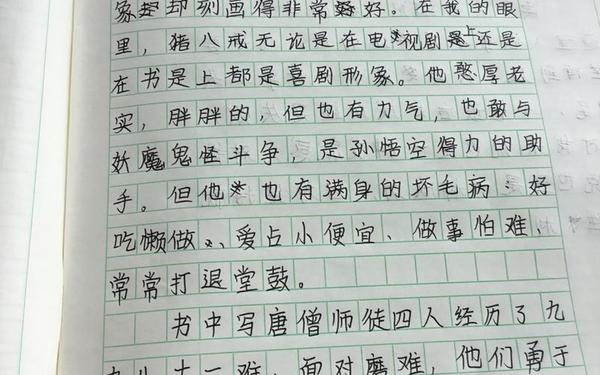 象却刻画得非常好。在我的眼
里，猪八戒无论是在电视剧上还是
在书是上都是喜剧形象。他憨厚老
实，胖胖的，但也有力气，也敢与
妖魔鬼怪斗争，是孙悟空得力的助
手。但他也有满身的坏毛病：好
吃懒做、爱占小便宜、做事怕难、
常常打退堂鼓。
书中写唐僧师徒四人经历了九
九八十一难，面对磨难，他们勇于